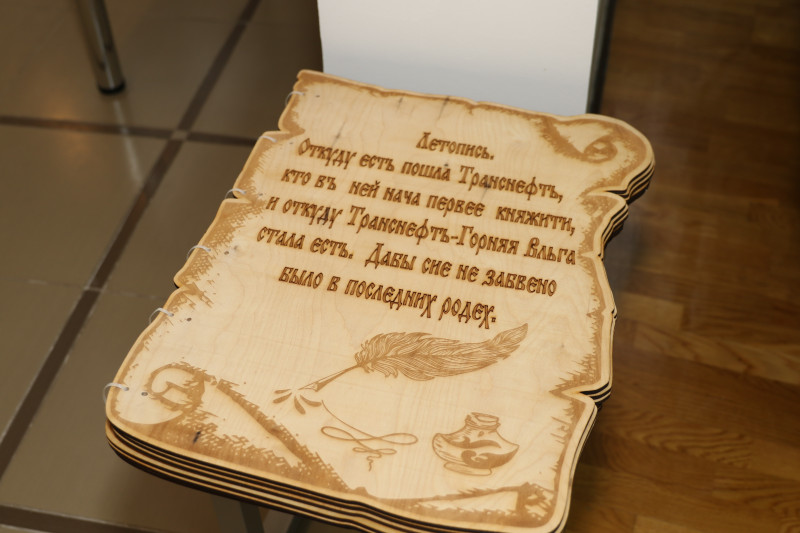 Летопись.
Откуду есть пошла Транснефть,
кто въ ней нача первее княжити,
и откуду Транснефть-Горняя Вльга
стала есть. Дабы сие не забвено
было в последних родех.